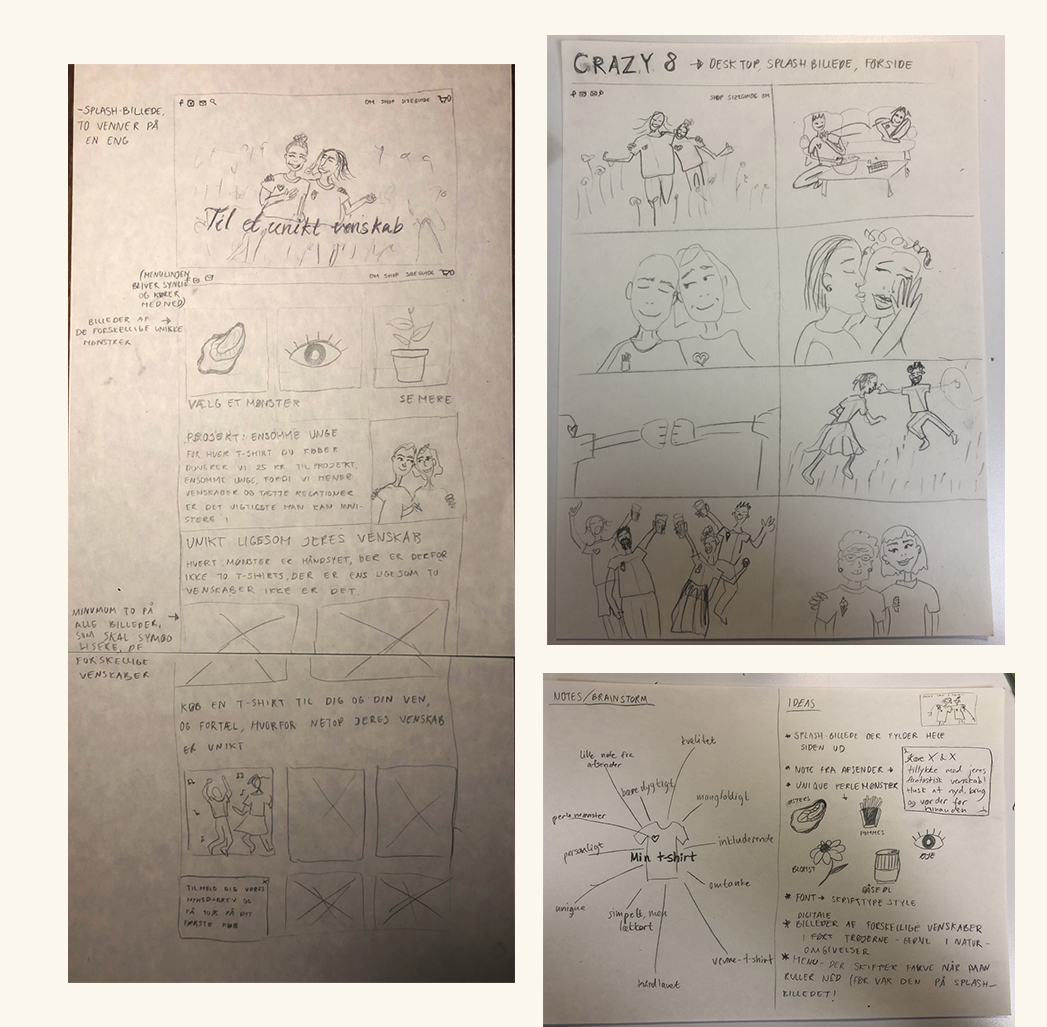 -SPLASH-BILLEDE,
TO VENNER PÅ
EN ENG
OM SHOP SIZEGUIDE
Til et unikt venskab
(MENULINJEN
BLIVER SYNLIG
OG KØRER
MED NED)
OM SHOP SIZEGUIDE
BILLEDER AF →
DE FORSKELLIGE UNIKKE
MØNSTRER
VÆLG ET MØNSTER
SE MERE
PROJEKT: ENSOMME UNGE
FOR HVER T-SHIRT DU KØBER
DONERER VI 25 KR. TIL PROJEKT,
ENSOMME UNGE, FORDI VI MENER
VENSKABER OG TÆTTE RELATIONER
ER DET VIGTIGSTE MAN KAN INVE-
STERE I
UNIKT LIGESOM JERES VENSKAB
HVERT MØNSTER ER HÅNDSYET, DER ER DERFOR
IKKE TO T-SHIRTS, DER ER ENS LIGESOM TO
VENSKABER IKKE ER DET.
MINUMUM TO PÅ →
ALLE BILLEDER,
SOM SKAL SYMBO
LISERE, DE
FORSKELLIGE
VENSKABER
KØB EN T-SHIRT TIL DIG OG DIN VEN,
OG FORTÆL, HVORFOR NETOP JERES VENSKAB
ER UNIKT
TILMELD DIG VORES
NYHEDSBREV OG
FÅ 10% PÅ DIT
FØRSTE KØB
CRAZY 8 → DESKTOP, SPLASH BILLEDE, FORSIDE
SHOP SIZEGUIDE OM
NOTES/BRAINSTORM
kvalitet
lille note fra
afsender
bæredygtigt
mangfoldigt
perlemønster
inkluderende
personligt
Min t-shirt
omtanke
unique
simpelt, men
lækkert
venne-t-shirt
håndlavet
IDEAS
* SPLASH-BILLEDE DER FYLDER HELE
SIDEN UD
* NOTE FRA AFSENDER →
Kære X & X
tillykke med jeres
fantastisk venskab!
Husk at nyd, brug
og værder for
hinanden
* UNIQUE PERLEMØNSTER
ØSTERS
POMMES
ØJE
BLOMST
DÅSE ØL
* FONT → SKRIFTTYPE STYLE
DIGITALE
* BILLEDER AF FORSKELLIGE VENSKABER
I FØRT TRØJERNE - GERNE I NATUR-
OMGIVELSER
* MENU - DER SKIFTER FARVE NÅR MAN
RULLER NED (FØR VAR DEN PÅ SPLASH-
BILLEDET!